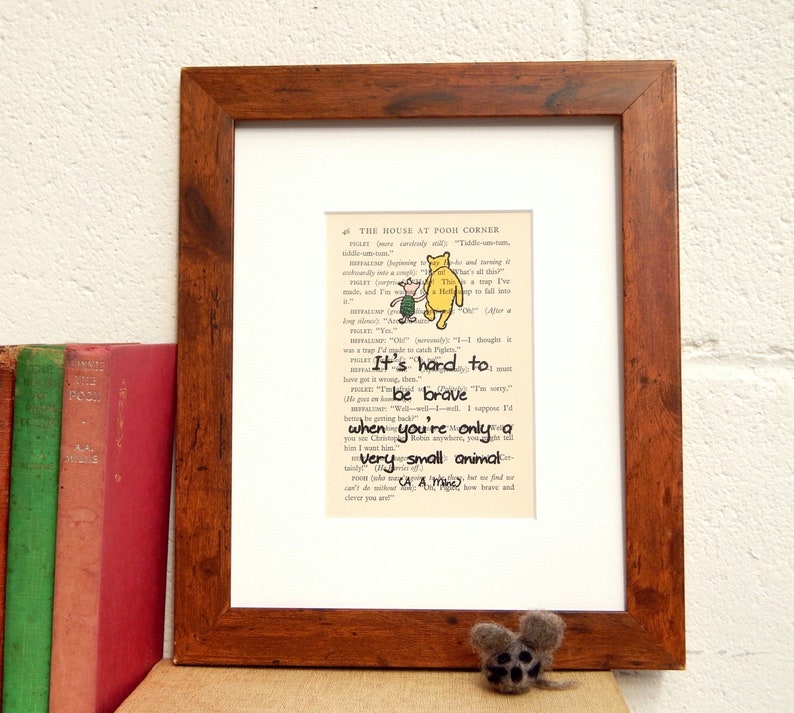 WINNIE
THE
POOH
A.A.
MILNE
THE
AT
46 THE HOUSE AT POOH CORNER
PIGLET (more carelessly still): "Tiddle-um-tum,
tiddle-um-tum."
HEFFALUMP (beginning to say Ho-ho and turning it
awkwardly into a cough): "H'r'm! What's all this?"
PIGLET (surprised): "Hallo! This is a trap I've
made, and I'm waiting for a Heffalump to fall into
it."
HEFFALUMP (greatly disappointed): "Oh!" (After a
long silence): "Are you sure?"
PIGLET: "Yes."
HEFFALUMP: "Oh!" (nervously): "I—I thought it
was a trap I'd made to catch Piglets."
PIGLET "Oh, no!"
It's hard to
HEFFALUMP: "Oh!" (Apologetically): "I—I must
have got it wrong, then."
be brave
PIGLET: "I'm afraid so." (Politely): "I'm sorry."
(He goes on humming.)
HEFFALUMP: "Well—well—I—well. I suppose I'd
better be getting back?"
when you're only a
you see Christopher Robin anywhere, you might tell
him I want him."
very small animal
HEFFALUMP "Certainly!" (He hurries off.)
(A A Milne)
POOH (who wasn't going to be there, but we find we
can't do without him): "Oh, Piglet, how brave and
clever you are!"